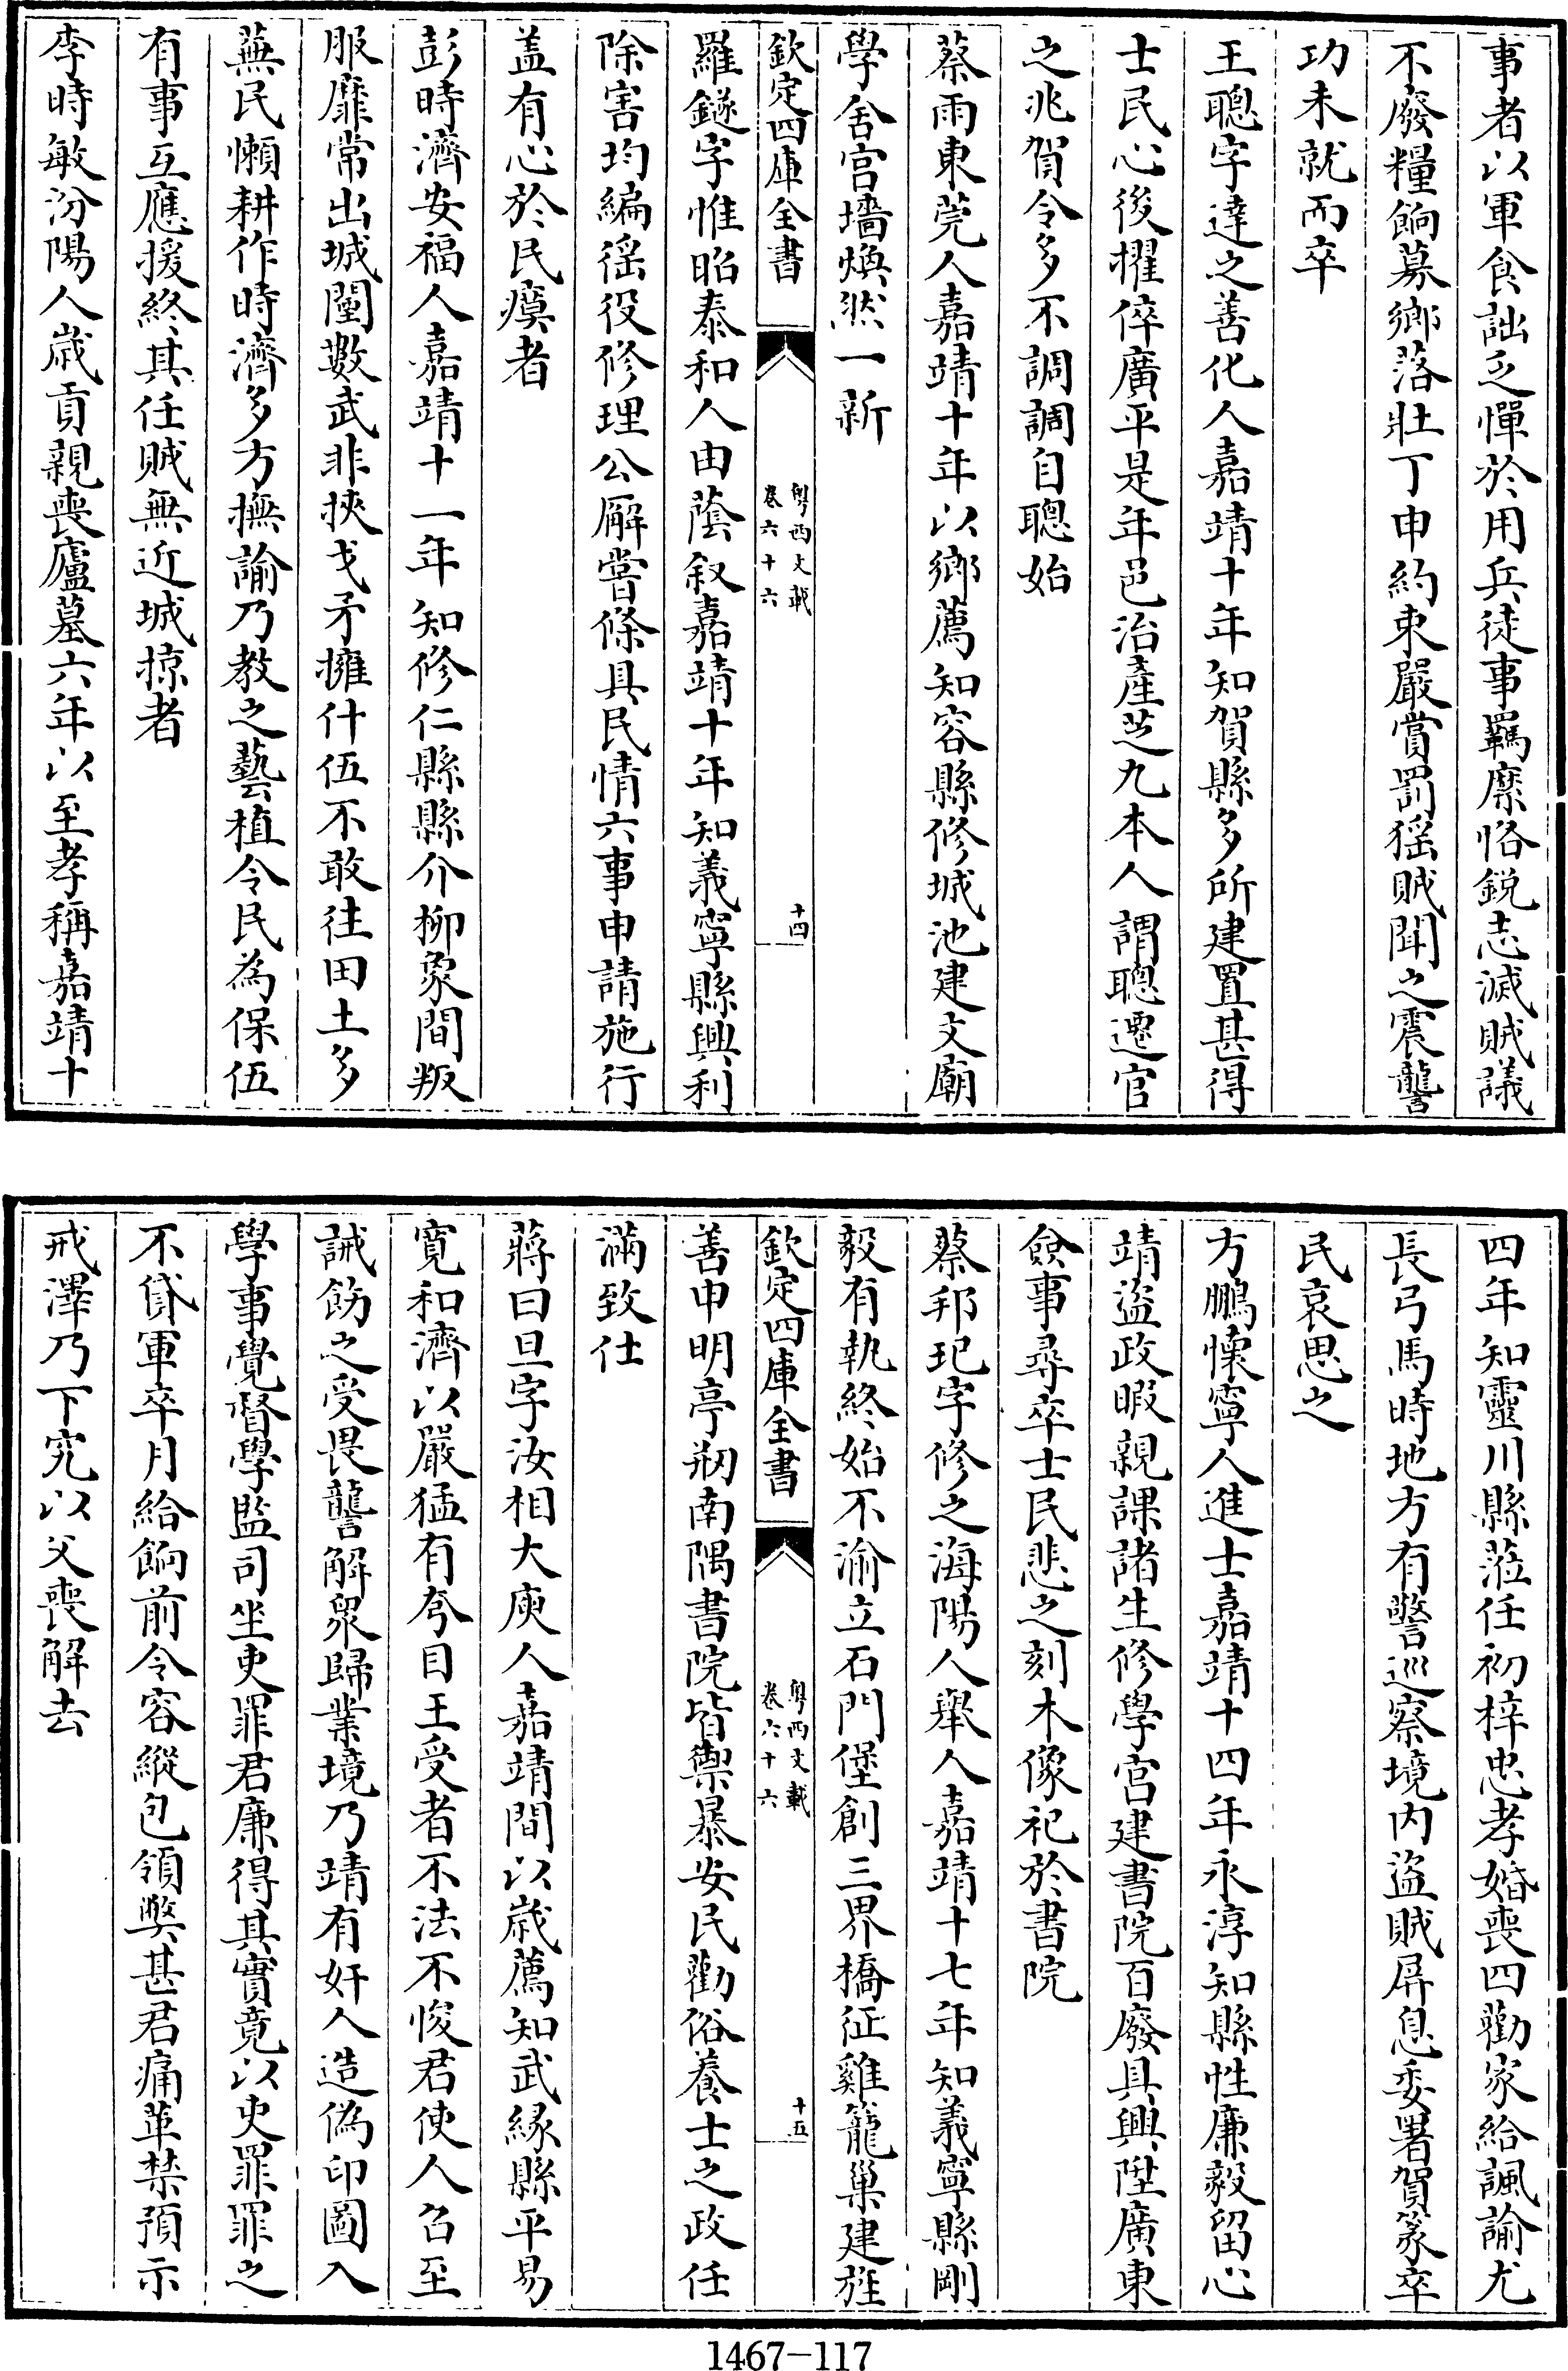 事者以軍食詘乏憚於用兵徒事羈縻恪鋭志滅賊議
不廢糧餉募鄉落壯丁申約束嚴賞罰猺賊聞之震讋
功未就而卒
王聰字達之善化人嘉靖十年知賀縣多所建置甚得
士民心後擢倅廣平是年邑治產芝九本人謂聰遷官
之兆賀令多不調調自聰始
蔡雨東莞人嘉靖十年以鄉薦知容縣修城池建文廟
學舍宮墻煥然一新
欽定四庫全書
粵西文載
卷六十六
十四
羅鐩字惟昭泰和人由蔭叙嘉靖十年知義寧縣興利
除害均編徭役修理公廨嘗條具民情六事申請施行
盖有心於民瘼者
彭時濟安福人嘉靖十一年知修仁縣縣介柳象間叛
服靡常出城闉數武非挾戈矛擁什伍不敢往田土多
蕪民懶耕作時濟多方撫諭乃教之藝植令民為保伍
有事互應援終其任賊無近城掠者
李時敏汾陽人歲貢親喪廬墓六年以至孝稱嘉靖十
四年知靈川縣蒞任初梓忠孝婚喪四勸家給諷諭尤
長弓馬時地方有警巡察境内盜賊屏息委署賀篆卒
民哀思之
方鵬懷寧人進士嘉靖十四年永淳知縣性廉毅留心
靖盜政暇親課諸生修學宮建書院百廢具興陞廣東
僉事尋卒士民悲之刻木像祀於書院
蔡邦玘字修之海陽人舉人嘉靖十七年知義寧縣剛
毅有執終始不渝立石門堡創三界橋征雞籠巢建旌
欽定四庫全書
粵西文載
卷六十六
十五
善申明亭剏南隅書院皆禦暴安民勸俗養士之政任
滿致仕
蔣曰旦字汝相大庾人嘉靖間以歲薦知武緣縣平易
寬和濟以嚴猛有夸目王受者不法不悛君使人召至
誡飭之受畏讋解衆歸業境乃靖有奸人造偽印圖入
學事覺督學監司坐吏罪君廉得其實竟以史罪罪之
不貸軍卒月給餉前令容縱包領弊甚君痛革禁預示
戒澤乃下究以父喪解去
1467-117